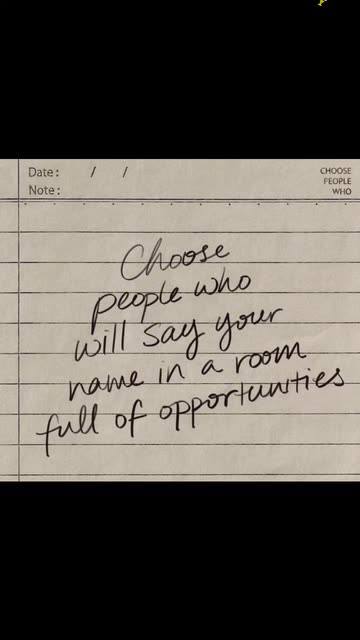 Date: / /
Note:
CHOOSE
PEOPLE
WHO
Choose
people who
will say your
name in a room
full of opportunities